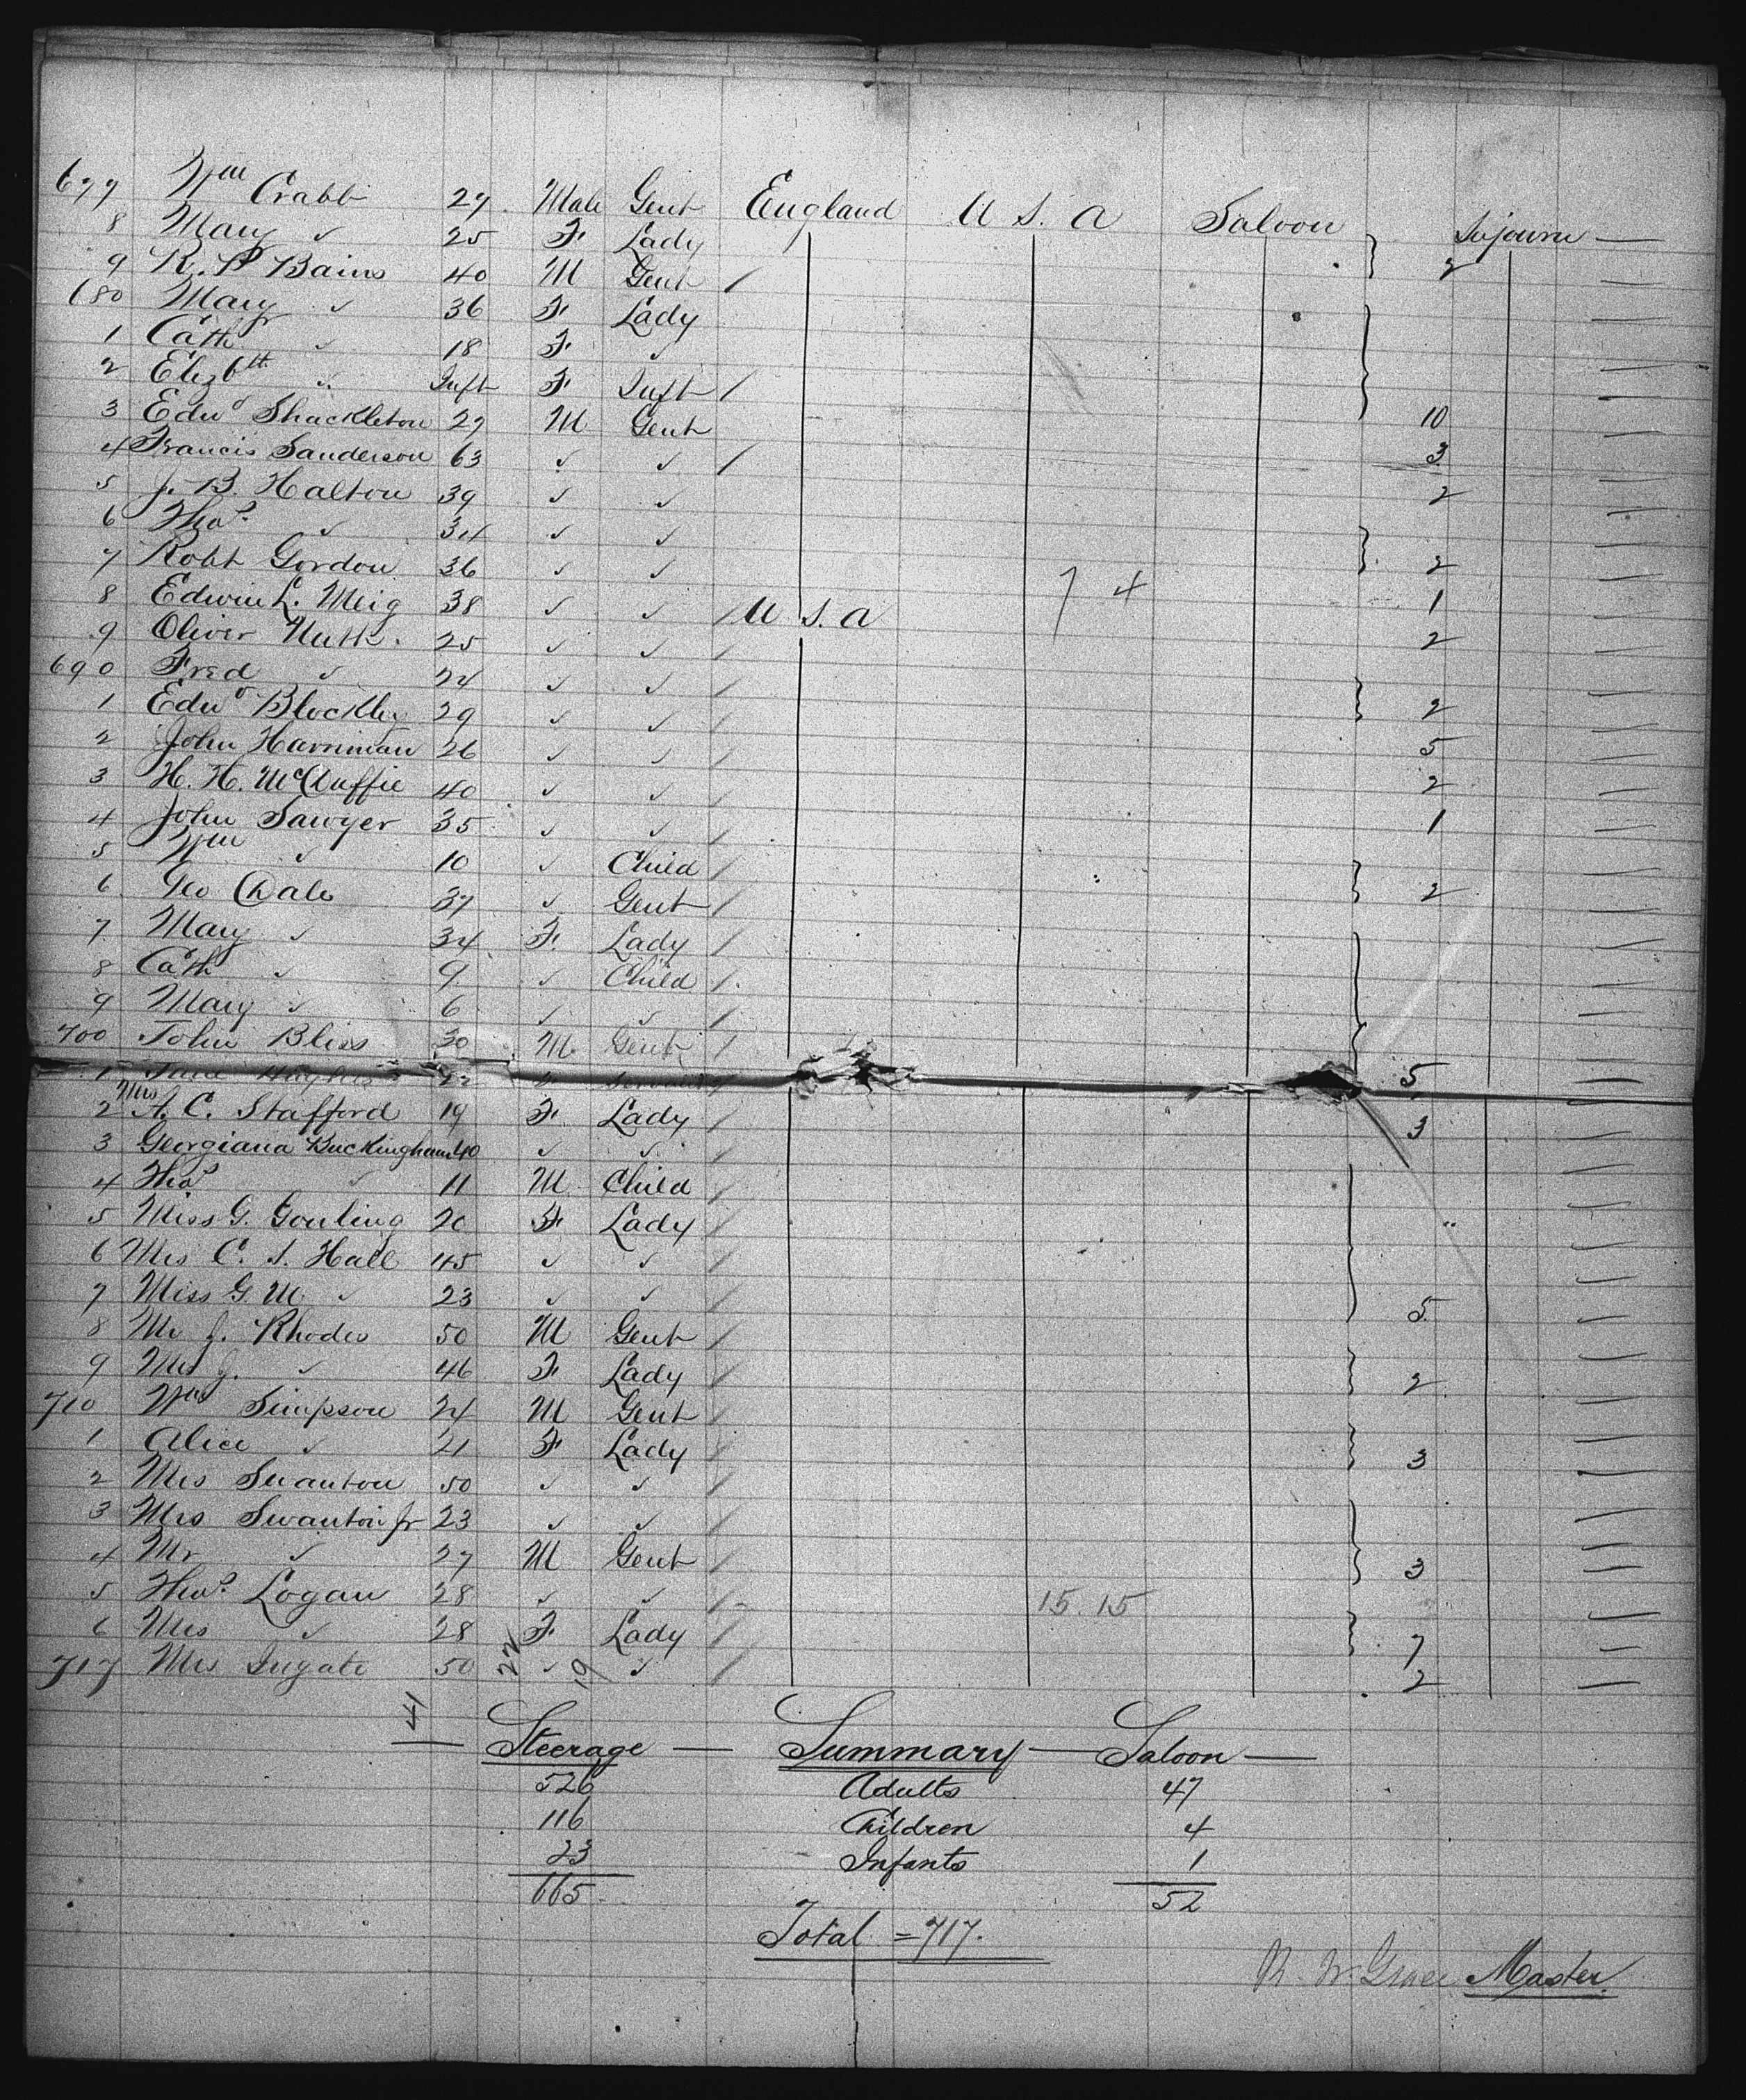 677 Wm Crabb 27 Male Gent England U S. A Saloon Sojourn —
8 Mary ✓ 25 F Lady 2
9 R. P Bains 40 M Gent /
680 Mary ✓ 36 F Lady
1 Cath ✓ 18 F ✓
2 Elizbth ✓ Inft F Inft /
3 Edwd Shackleton 27 M Gent 10
4 Francis Sanderson 63 ✓ ✓ / 3
5 J. B. Halton 39 ✓ ✓ 2
6 Thos ✓ 34 ✓ ✓
7 Robt Gordon 36 ✓ ✓ 2
8 Edwin L. Meig 38 ✓ ✓ / U S. A 7 4 1
9 Oliver Nutt 25 ✓ ✓ / 2
690 Fred ✓ 24 ✓ ✓ /
1 Edwd Blockley 29 ✓ ✓ / 2
2 John Harriman 26 ✓ ✓ / 5
3 H. H. McDuffie 40 ✓ ✓ / 2
4 John Sawyer 35 ✓ ✓ / 1
5 Wm ✓ 10 ✓ Child /
6 Geo Dale 37 ✓ Gent / 2
7 Mary ✓ 34 F. Lady /
8 Cath ✓ 9 ✓ Child /
9 Mary ✓ 6 ✓ ✓ /
700 John Bliss 30 M. Gent /
1 Hughes 5
2 Mrs A. C. Stafford 19 F. Lady / 3
3 Georgiana Buckingham 40 ✓ ✓ /
4 Thos ✓ 11 M Child /
5 Miss G. Gouling 20 F Lady /
6 Mrs C. S. Hall 45 ✓ ✓ /
7 Miss G. M ✓ 23 ✓ ✓ / 5
8 Mr J. Rhodes 50 M Gent /
9 Mrs J. ✓ 46 F Lady / 2
710 Wm Simpson 24 M Gent /
1 Alice ✓ 21 F Lady / 3
2 Mrs Swanton 50 ✓ ✓ /
3 Mrs Swanton Jr 23 ✓ ✓ /
4 Mr ✓ 27 M Gent / 3
5 Thos. Logan 28 ✓ ✓ / 15. 15
6 Mrs ✓ 28 F Lady / 7
717 Mrs Ingate 50 22 ✓ 19 ✓ / 2
41
— Steerage — Summary — Saloon —
526 Adults 47
116 Children 4
23 Infants 1
665 52
Total = 717.
Master